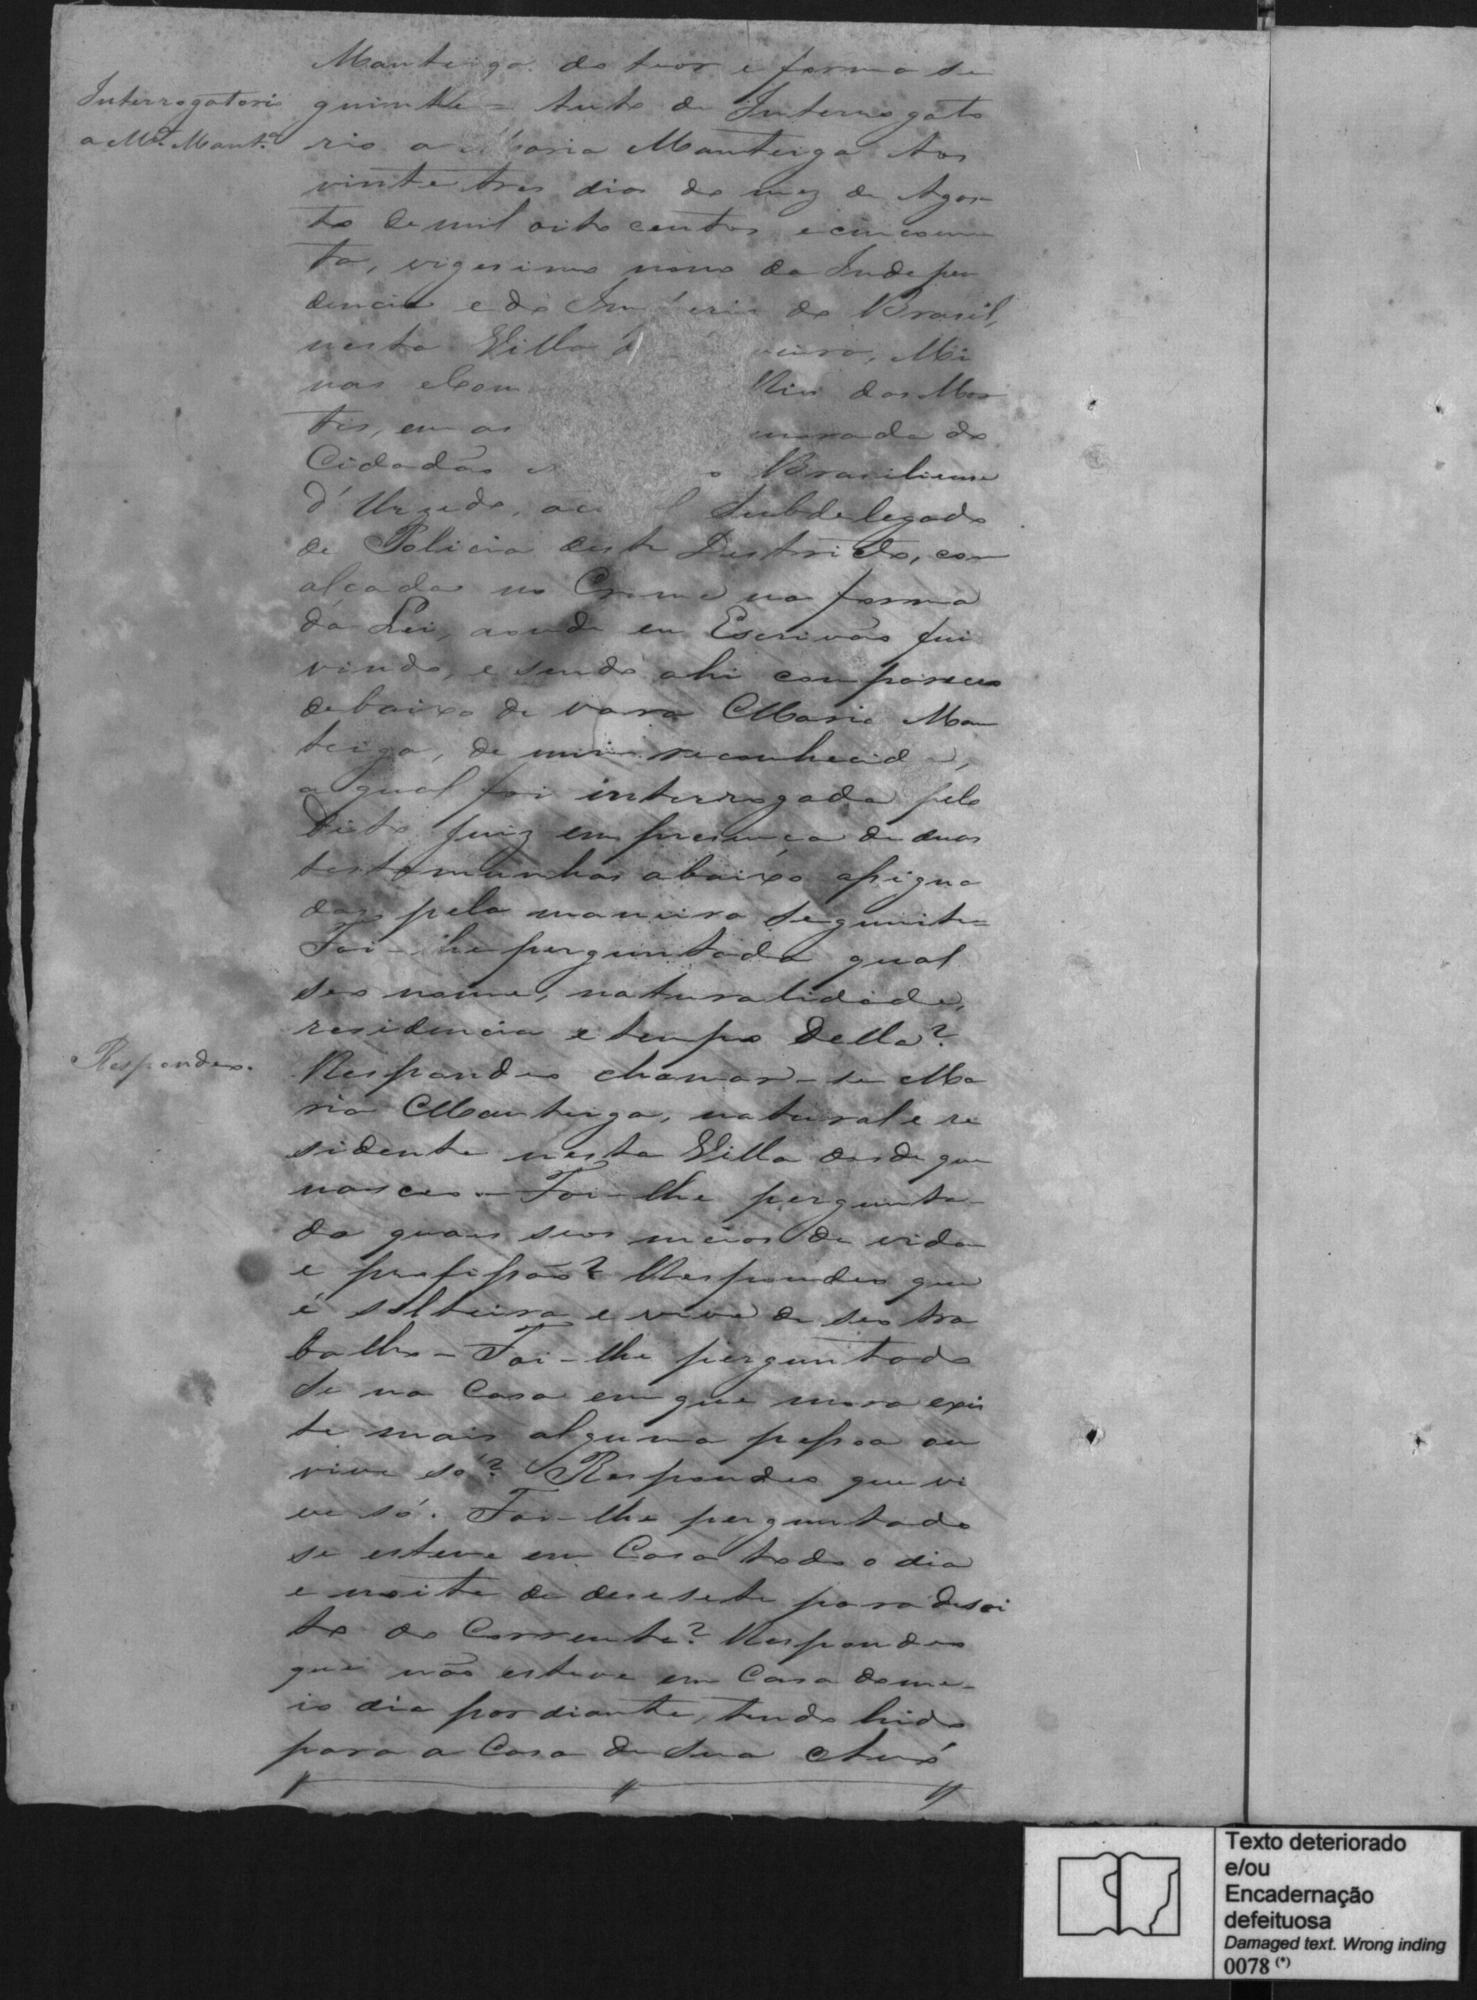 Interrogatorio
a Mª. Mantª.
Manteiga do teor e forma se
guinte = Auto de Interrogato
rio a Maria Manteiga Aos
vinte tres dias do mez de Agos
to de mil oito centos e cincoen
ta, vigesimo nono da Indepen
dencia e do Imperio do Brasil,
nesta Villa Mi
nas e Com Rio das Mor
tes, em as morada do
Cidadão Brasiliense
d'Urzedo, Subdelegado
de Policia deste Districto, com
alçada no Crime na forma
da Lei, aonde eu Escrivão fui
vindo, e sendo ahi compareceo
debaixo de vara Maria Man
teiga, de mim reconhecida,
a qual foi interrogada pelo
Dito Juiz em presença de duas
testemunhas abaixo assigna
das pela maneira seguinte =
Foi-lhe perguntada qual
seo nome, naturalidade,
residencia e tempo della?
Respondeo.
Respondeo chamar-se Ma
ria Manteiga, natural e re
sidente nesta Villa desde que
nasceo - Foi-lhe pergunta-
do quais seos meios de vida
e profissão? Respondeo que
é solteira e vive de seo tra
balho - Foi-lhe perguntado
se na Casa em que mora exis
te mais alguma pessoa ou
vive só? Respondeo que vi
ve só. Foi-lhe perguntado
se esteve em Casa todo o dia
e noite de desesete para desoi
to do Corrente? Respondeo
que não esteve em Casa do me-
io dia por diante, tendo hido
para a Casa de sua Avó
Texto deteriorado
e/ou
Encadernação
defeituosa
Damaged text. Wrong inding
0078 (*)